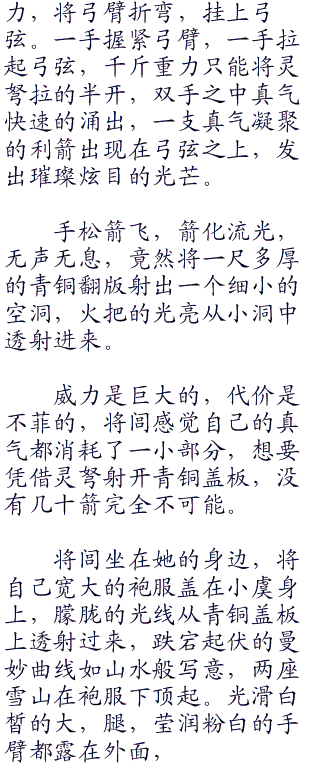 力，将弓臂折弯，挂上弓
弦。一手握紧弓臂，一手拉
起弓弦，千斤重力只能将灵
弩拉的半开，双手之中真气
快速的涌出，一支真气凝聚
的利箭出现在弓弦之上，发
出璀璨炫目的光芒。
手松箭飞，箭化流光，
无声无息，竟然将一尺多厚
的青铜翻版射出一个细小的
空洞，火把的光亮从小洞中
透射进来。
威力是巨大的，代价是
不菲的，将闾感觉自己的真
气都消耗了一小部分，想要
凭借灵弩射开青铜盖板，没
有几十箭完全不可能。
将闾坐在她的身边，将
自己宽大的袍服盖在小虞身
上，朦胧的光线从青铜盖板
上透射过来，跌宕起伏的曼
妙曲线如山水般写意，两座
雪山在袍服下顶起。光滑白
皙的大，腿，莹润粉白的手
臂都露在外面，